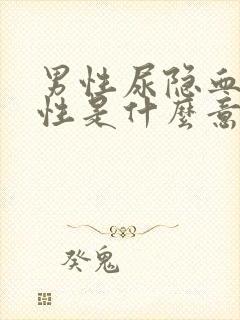 男性尿隐血
性是什麼意
癸鬼